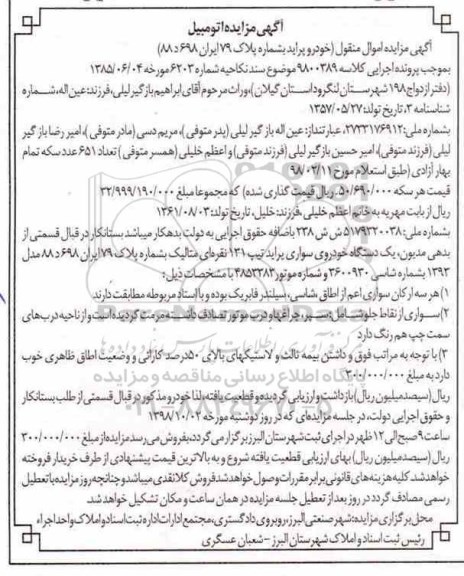 آگهی مزایده اتومبیل
آگهی مزایده اموال منقول (خودرو پراید بشماره پلاک ۷۹ ایران ۶۹۸ د ۸۸)
بموجب پرونده اجرایی کلاسه ۹۸۰۰۳۸۹ موضوع سند نکاحیه شماره ۶۲۰۳ مورخه ۱۳۸۵/۰۶/۰۴
(دفتر ازدواج ۱۹۸ شهرستان لنگرود استان گیلان)، وراث مرحوم آقای ابراهیم بازگیر لیلی، فرزند: عین اله، شماره
شناسنامه ۳، تاریخ تولد: ۱۳۵۷/۰۵/۲۷
بشماره ملی: ۲۷۳۳۱۷۶۹۱۲، عبارتنداز: عین اله بازگیر لیلی (پدر متوفی)، مریم دسی (مادر متوفی)، امیر رضا بازگیر
لیلی (فرزند متوفی)، امیر حسین بازگیر لیلی (فرزند متوفی) و اعظم خلیلی (همسر متوفی) تعداد ۶۵۱ عدد سکه تمام
بهار آزادی (طبق استعلام مورخ ۹۸/۰۲/۱۱
قیمت هر سکه ۵۰/۶۹۰/۰۰۰ ریال قیمت گذاری شده) که مجموعا مبلغ ۳۲/۹۹۹/۱۹۰/۰۰۰
ریال از بابت مهریه به خانم اعظم خلیلی، فرزند: خلیل، تاریخ تولد: ۱۳۶۱/۰۸/۰۳
بشماره ملی: ۵۱۷۹۳۲۰۰۳۸ ش ش ۲۳۸ باضافه حقوق اجرایی به دولت بدهکار میباشد بستانکار در قبال قسمتی از
بدهی مدیون، یک دستگاه خودروی سواری پراید تیپ ۱۳۱ نقره‌ای متالیک بشماره پلاک ۷۹ ایران ۶۹۸ د ۸۸ مدل
۱۳۹۲ بشماره شاسی ۳۶۰۰۹۳۰ و شماره موتور ۴۸۵۳۳۸۳ با مشخصات ذیل:
۱) هر سه ارکان سواری اعم از اطاق، شاسی، سیلندر فابریک بوده و با اسناد مربوطه مطابقت دارند
۲) سواری از نقاط جلو شامل: سپر، چراغها و درب موتور تصادف داشته مرمت گردیده است و از ناحیه درب‌های
سمت چپ هم رنگ دارد
۳) با توجه به مراتب فوق و داشتن بیمه ثالث و لاستیکهای بالای ۵۰ درصد کارائی و وضعیت اطاق ظاهری خوب
دارد به مبلغ ۳۰۰/۰۰۰/۰۰۰
ریال (سیصد میلیون ریال) بازداشت و ارزیابی گردیده و قطعیت یافته، لذا خودرو مذکور در قبال قسمتی از طلب بستانکار
و حقوق اجرایی دولت، در جلسه مزایده‌ای که در روز دوشنبه مورخه ۱۳۹۸/۱۰/۰۲
ساعت ۹ صبح الی ۱۲ ظهر در اجرای ثبت شهرستان البرز برگزار می گردد، بفروش می رسد مزایده از مبلغ ۳۰۰/۰۰۰/۰۰۰
ریال (سیصد میلیون ریال) بهای ارزیابی قطعیت یافته شروع و به بالاترین قیمت پیشنهادی از طرف خریدار فروخته
خواهد شد. کلیه هزینه های قانونی برابر مقررات وصول خواهد شد. فروش کلا نقدی میباشد و چنانچه روز مزایده با تعطیل
رسمی مصادف گردد در روز بعد از تعطیل جلسه مزایده در همان ساعت و مکان تشکیل خواهد شد.
محل برگزاری مزایده: شهر صنعتی البرز، روبروی دادگستری، مجتمع ادارات اداره ثبت اسناد و املاک واحد اجراء
رئیس ثبت اسناد و املاک شهرستان البرز - شعبان عسگری
پایگاه اطلاع رسانی مناقصه و مزایده